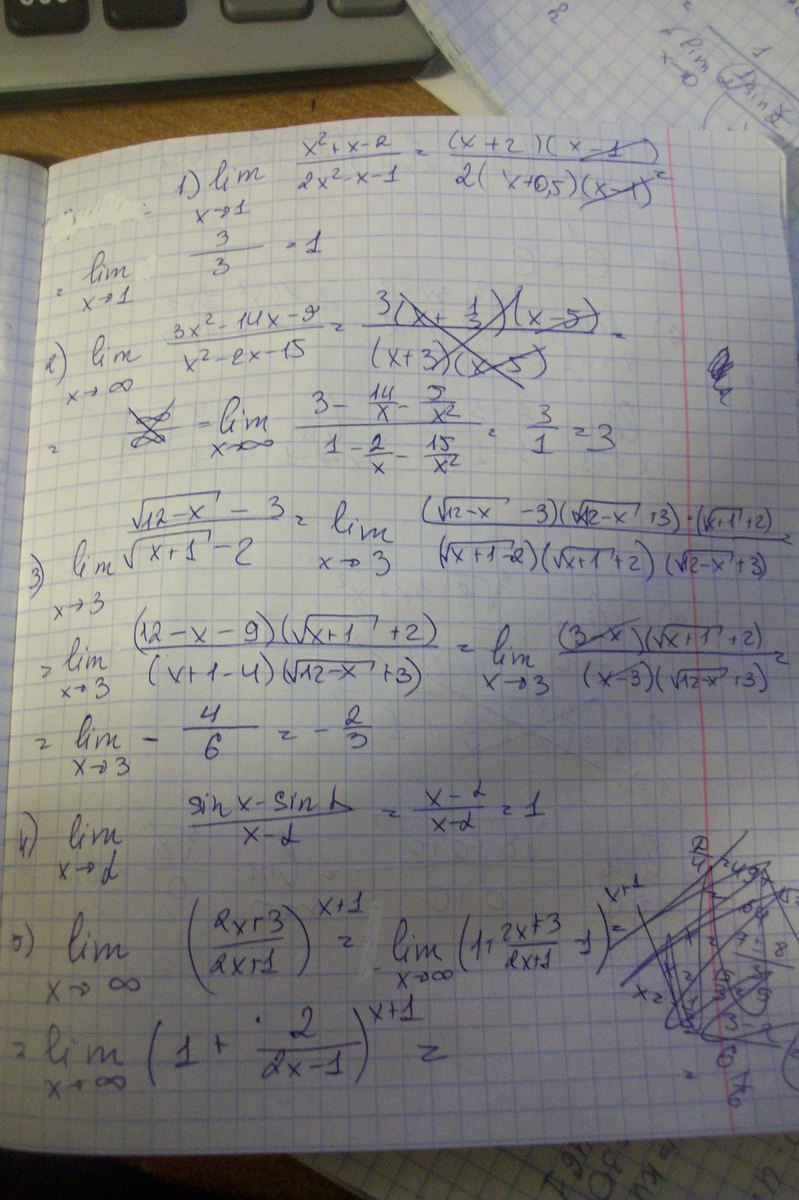 1) lim x→1 (x²+x-2)/(2x²-x-1) = ((x+2)(x-1))/(2(x+0,5)(x-1)) =
= lim x→1 3/3 = 1
2) lim x→∞ (3x²-14x-9)/(x²-2x-15) = (3(x+1/3)(x-5))/((x+3)(x-5)) =
= = lim x→∞ (3 - 14/x - 5/x²)/(1 - 2/x - 15/x²) = 3/1 = 3
3) lim x→3 (√(12-x) - 3)/(√(x+1) - 2) = lim x→3 ((√(12-x) - 3)(√(12-x) + 3)·(√(x+1) + 2))/((√(x+1) - 2)(√(x+1) + 2)(√(12-x) + 3)) =
= lim x→3 ((12-x-9)(√(x+1) + 2))/((x+1-4)(√(12-x) + 3)) = lim x→3 ((3-x)(√(x+1) + 2))/((x-3)(√(12-x) + 3)) =
= lim x→3 - 4/6 = - 2/3
4) lim x→α (sin x - sin α)/(x-α) = (x-α)/(x-α) = 1
5) lim x→∞ ((2x+3)/(2x+1))^(x+1) = lim x→∞ (1 + (2x+3)/(2x+1) - 1)^(x+1) =
= lim x→∞ (1 + 2/(2x-1))^(x+1) =